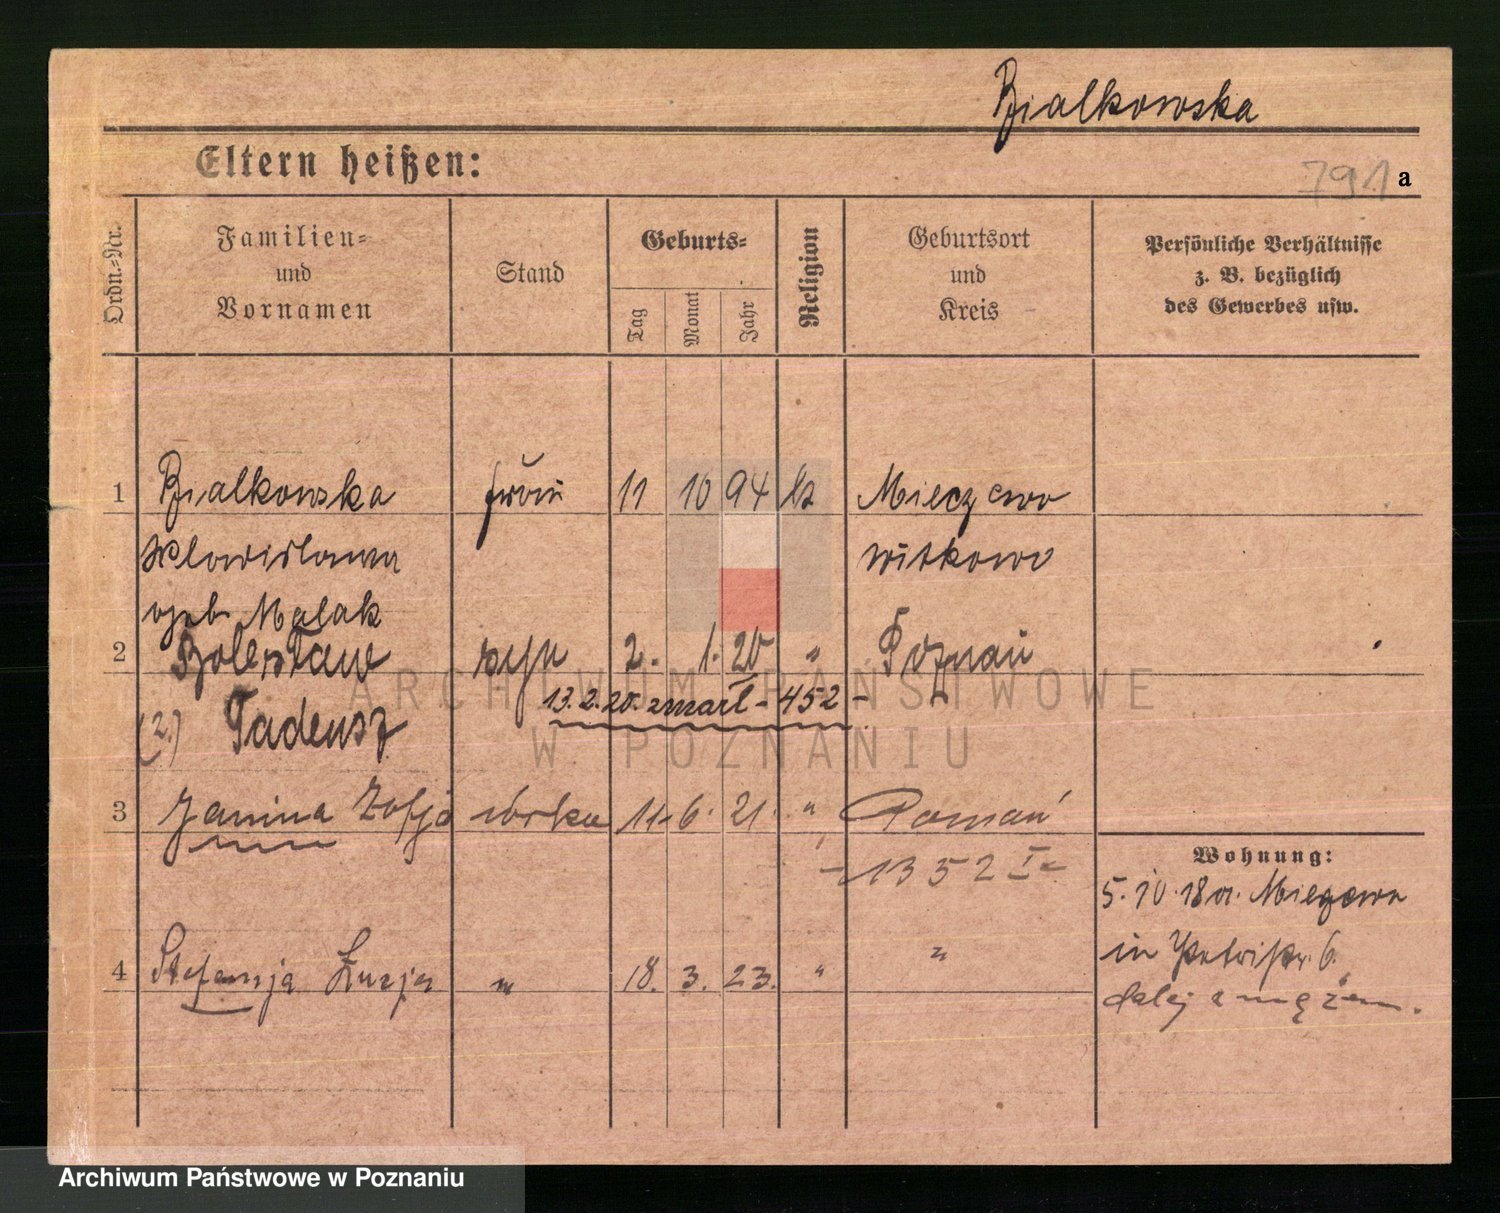 Bialkowska
Eltern heißen:
791 a
Ordn.-Nr.
Familien-
und
Vornamen
Stand
Geburts-
Tag
Monat
Jahr
Religion
Geburtsort
und
Kreis
Persönliche Verhältnisse
z. B. bezüglich
des Gewerbes usw.
1 Bialkowska 11 10 94 Mieczewo
Witkowo
geb. Malak
2 Bolesław syn 2. 1. 20 " Poznań
13.2.20. zmarł - 452 -
(2.) Tadeusz
3 Janina Zofja córka 11. 6. 21. " Poznań
- 1352 I -
Wohnung:
5. 10. 18 Mieczewo
in Petristr. 6.
4 Stefanja Łucja " 18. 3. 23. " "
dalej z mężem.
ARCHIWUM PAŃSTWOWE
W POZNANIU
Archiwum Państwowe w Poznaniu